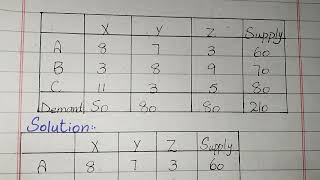 X Y Z Supply
A 8 7 3 60
B 3 8 9 70
C 11 3 5 80
Demand 50 80 80 210
Solution:-
X Y Z Supply
A 8 7 3 60